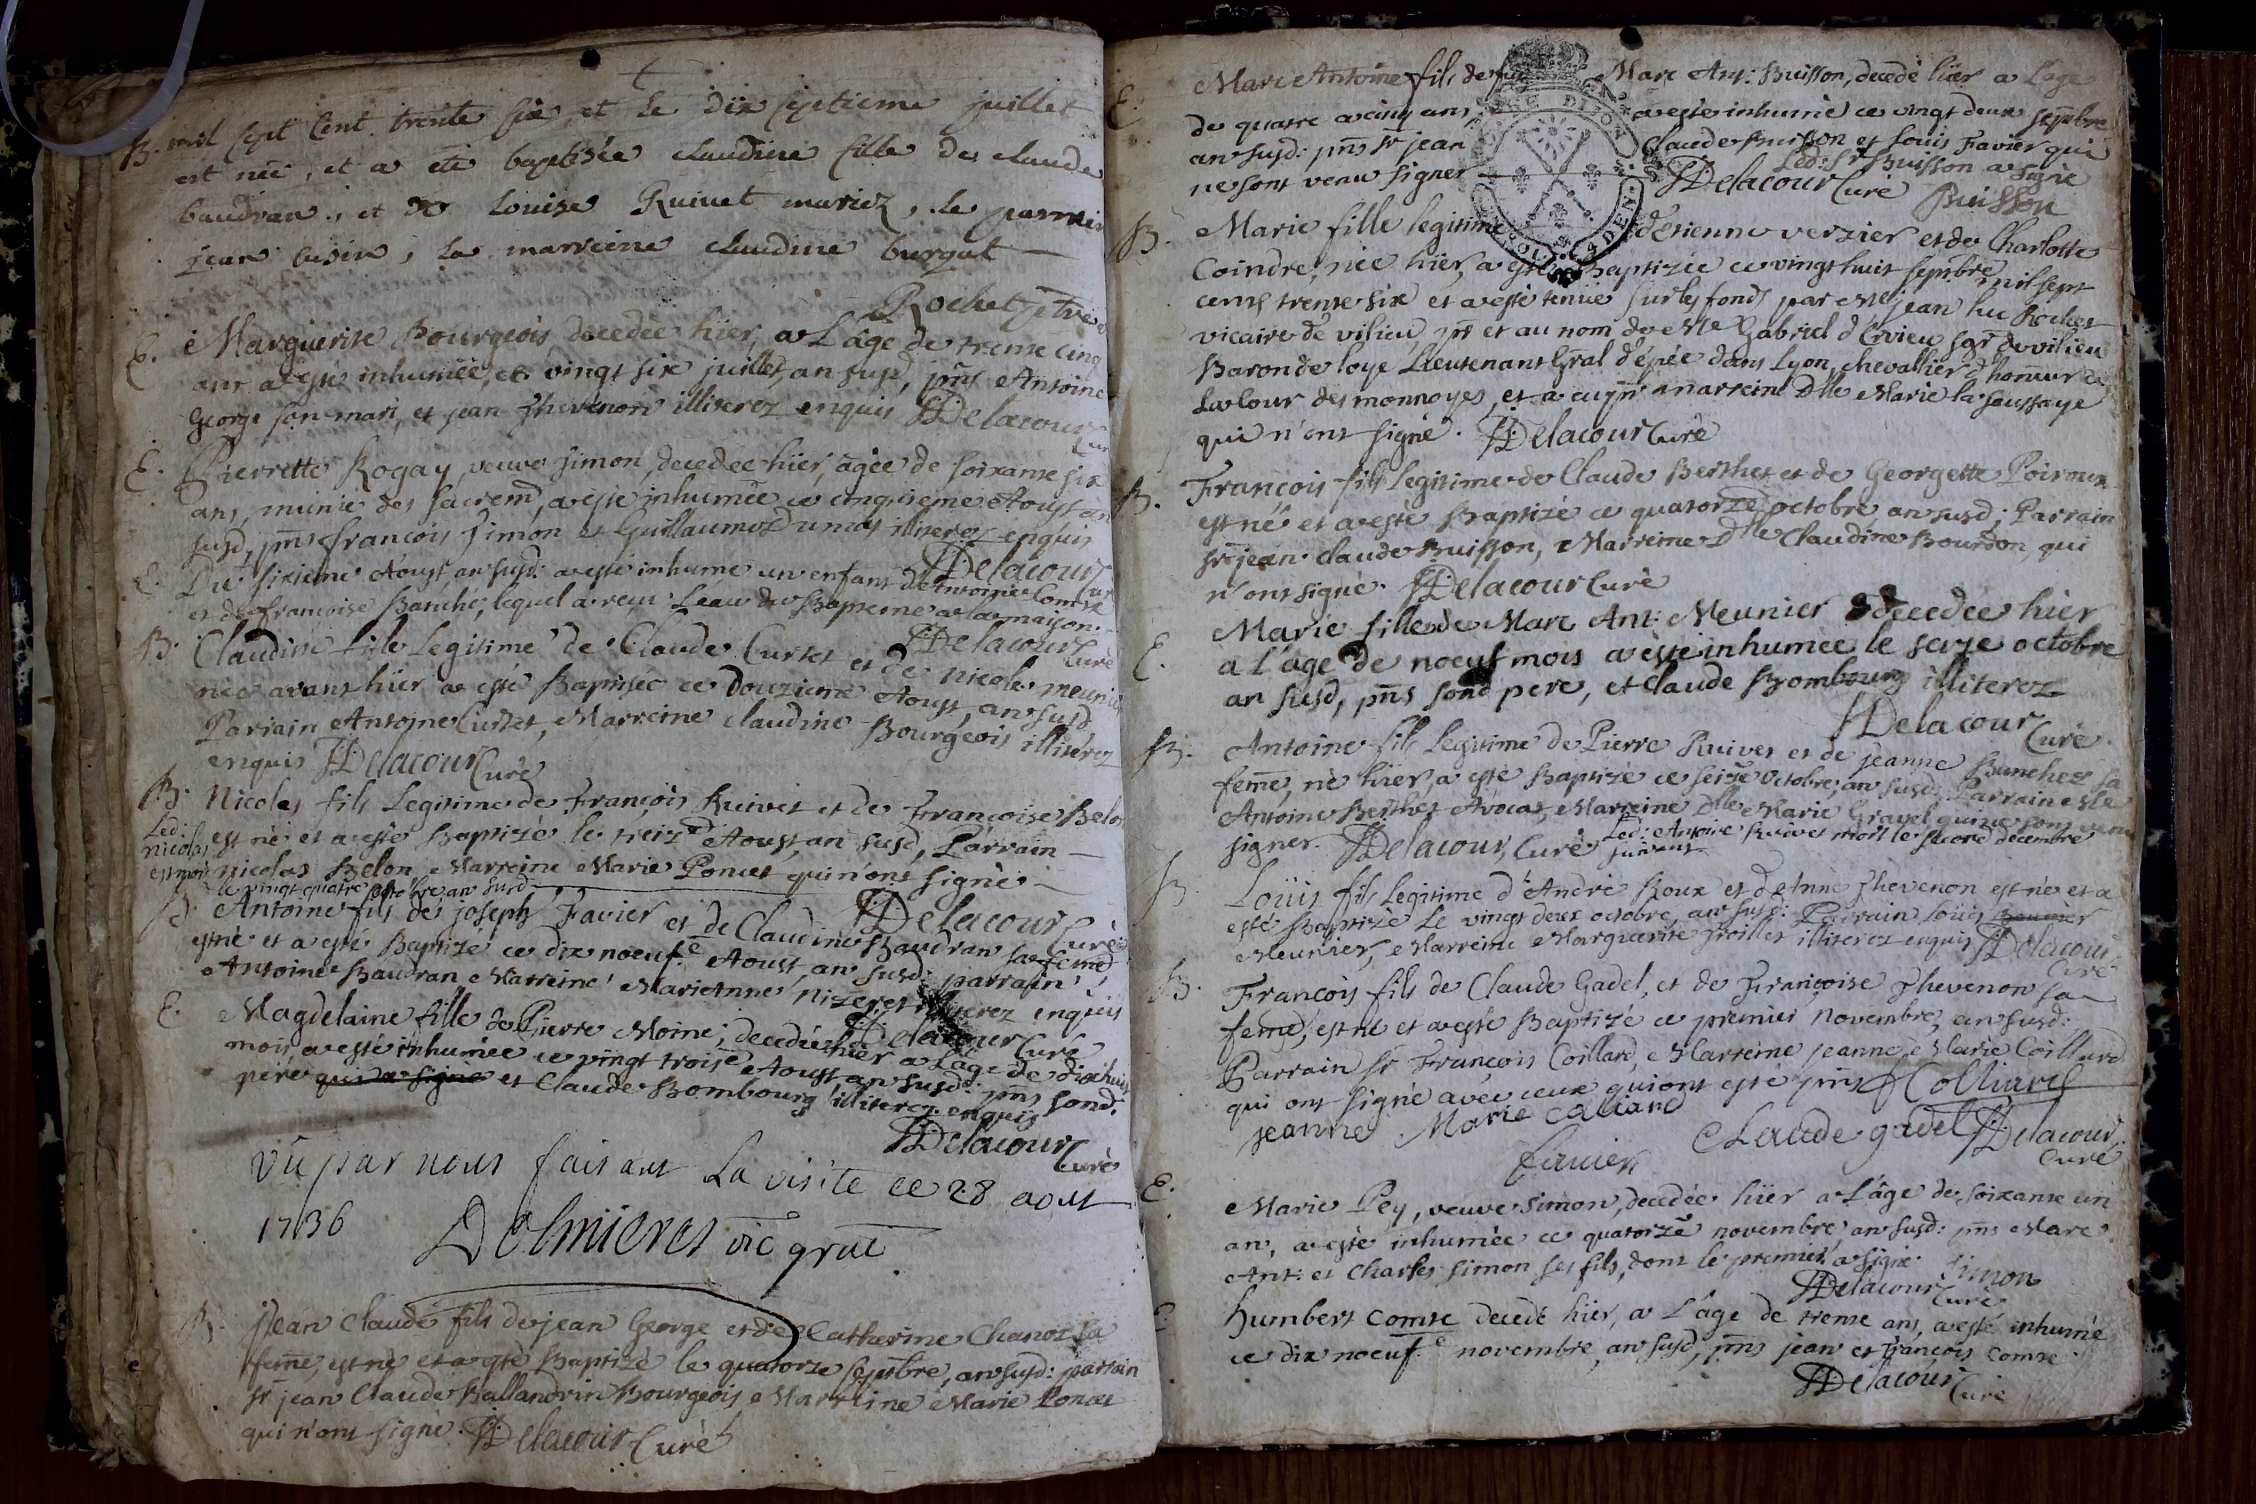 B. mil sept cent trente six, et le dix septieme juillet
est née, et a été baptisée claudine fille de claude
baudran, et de Louise Ruivet mariez, le parrain
jean cusin, la marreine claudine burgat
Rochet ptre
E. Marguerite Bourgeois decedée hier, a L'âge de trente cinq
ans a esté inhumée, ce vingt six juillet, an susd, pnts Antoine
George son mari, et jean Thevenon illiterez enquis Delacour
Curé
E. Pierrette Rogay, veuve Simon, decedée hier, agée de soixante six
ans, munie des sacremts, a esté inhumée ce cinquieme Aoust an
susd, pnts francois Simon et Guillaume Dumas illiterez enquis
Delacour Curé
E. Du sixieme Aoust an susd: a esté inhumé un enfant d'Antoine Comte
et de francoise Banchet, lequel a reçu L'eau du Baptême a la maison.
Delacour Curé
B. Claudine fille Legitime de Claude Curtet et de nicole meunier
née avant hier a esté Baptisée ce douzieme Aoust, an susd
Parrain Antoine Curtet, Marreine claudine Bourgeois illiterez
enquis Delacour Curé
B. Nicolas fils Legitime de François Ruivet et de Françoise Belon
est né et a esté Baptizé le treize Aoust, an susd, Parrain
nicolas Belon, Marreine Marie Poncet qui n'ont signé.
Led: nicolas est mort
le vingt quatre octobre an susd
Delacour Curé
B. Antoine fils de joseph Favier et de Claudine Baudran sa feme
est né et a esté Baptizé ce dix noeufe Aoust, an susd: parrain
Antoine Baudran Marreine Marieanne Nizeret illiterez enquis
Delacour Curé
E. Magdelaine fille de Pierre Moine, decedée hier a L'age de dix huit
mois, a esté inhumée ce vingt troise Aoust an susd: pnts sond:
pere qui a signé et Claude Bombourg illiterez enquis
Delacour Curé
vû par nous faisant La visite ce 28 aout
1736 Delmieres vic gnal
B. Jean Claude fils de jean George et de Catherine Chanot sa
feme, est né et a esté Baptizé le quatorze septbre, an susd: parrain
sr jean Claude Ballandrin Bourgeois Marreine Marie Poncet
qui n'ont signé. Delacour Curé
E. Marc Antoine fils de feu Marc Ant: Buisson, decedé hier a L'age
de quatre a cinq ans a esté inhumé ce vingt deux septbre
an susd: pnts sr jean Claude Buisson et Louis Favier qui
ne sont venu signer Led: sr Buisson a signé
Delacour Curé Buisson
B. Marie fille legitime d'Etienne verzier et de Charlotte
Coindre, née hier, a esté Baptizée ce vingt huit septbre mil sept
cents trente six et a esté tenue sur les fonds par Mre jean luc Rochet
vicaire de vilieu, pr et au nom de Mre Gabriel d'Ervieu sgr de vilieu
Baron de loye Lieutenant Gñal d'épée dans Lyon, chevallier d'honneur de
La Cour des monnoyes, et a eu pr marreine Dlle Marie la saussaye
qui n'ont signé. Delacour Curé
B. François fils legitime de Claude Berthet et de Georgette Poiroux
est né et a esté Baptizé ce quatorze octobre an susd; Parrain
sr jean claude Buisson, Marreine Dlle Claudine Bourdon, qui
n'ont signé. Delacour Curé
E. Marie fille de Marc Ant: Meunier decedée hier
a l'age de noeuf mois a esté inhumée le seize octobre
an susd, pnts sond pere, et Claude Bombourg illiterez
Delacour Curé
B. Antoine fils Legitime de Pierre Ruivet et de jeanne Banchet sa
feme, né hier, a esté Baptizé ce seize Octobre, an susd: Parrain Mre
Antoine Berthet Avocat, Marreine Dlle Marie Gravel qui ne sont venu
signer. Delacour Curé Led: Antoine Ruivet mort le second décembre
suivant
B Loüis fils legitime d'André Roux et d'Anne Thevenon est né et a
esté Baptizé Le vingt deux octobre, an susd: Parrain Loüis
Meunier, Marreine Marguerite Troillet illiterez enquis Delacour
Curé
B. François fils de Claude Gadel, et de Françoise Thevenon sa
feme, est né et a esté Baptizé ce premier Novembre, an susd:
Parrain sr François Coillard, Marreine jeanne Marie Coillard
qui ont signé avec ceux qui ont esté pnts f Colliard
jeanne Marie Colliard Claude gadel Delacour
favier Curé
E. Marie Pey, veuve Simon, decedée hier a L'âge de soixante un
an, a esté inhumée ce quatorze novembre, an susd: pnts Marc
Ant: et Charles Simon ses fils, dont le premier a signé Simon
Delacour Curé
E. humbert Comte decedé hier, a L'âge de trente ans, a esté inhumé
ce dix noeufe novembre, an susd, pnts jean et François Comte
Delacour Curé